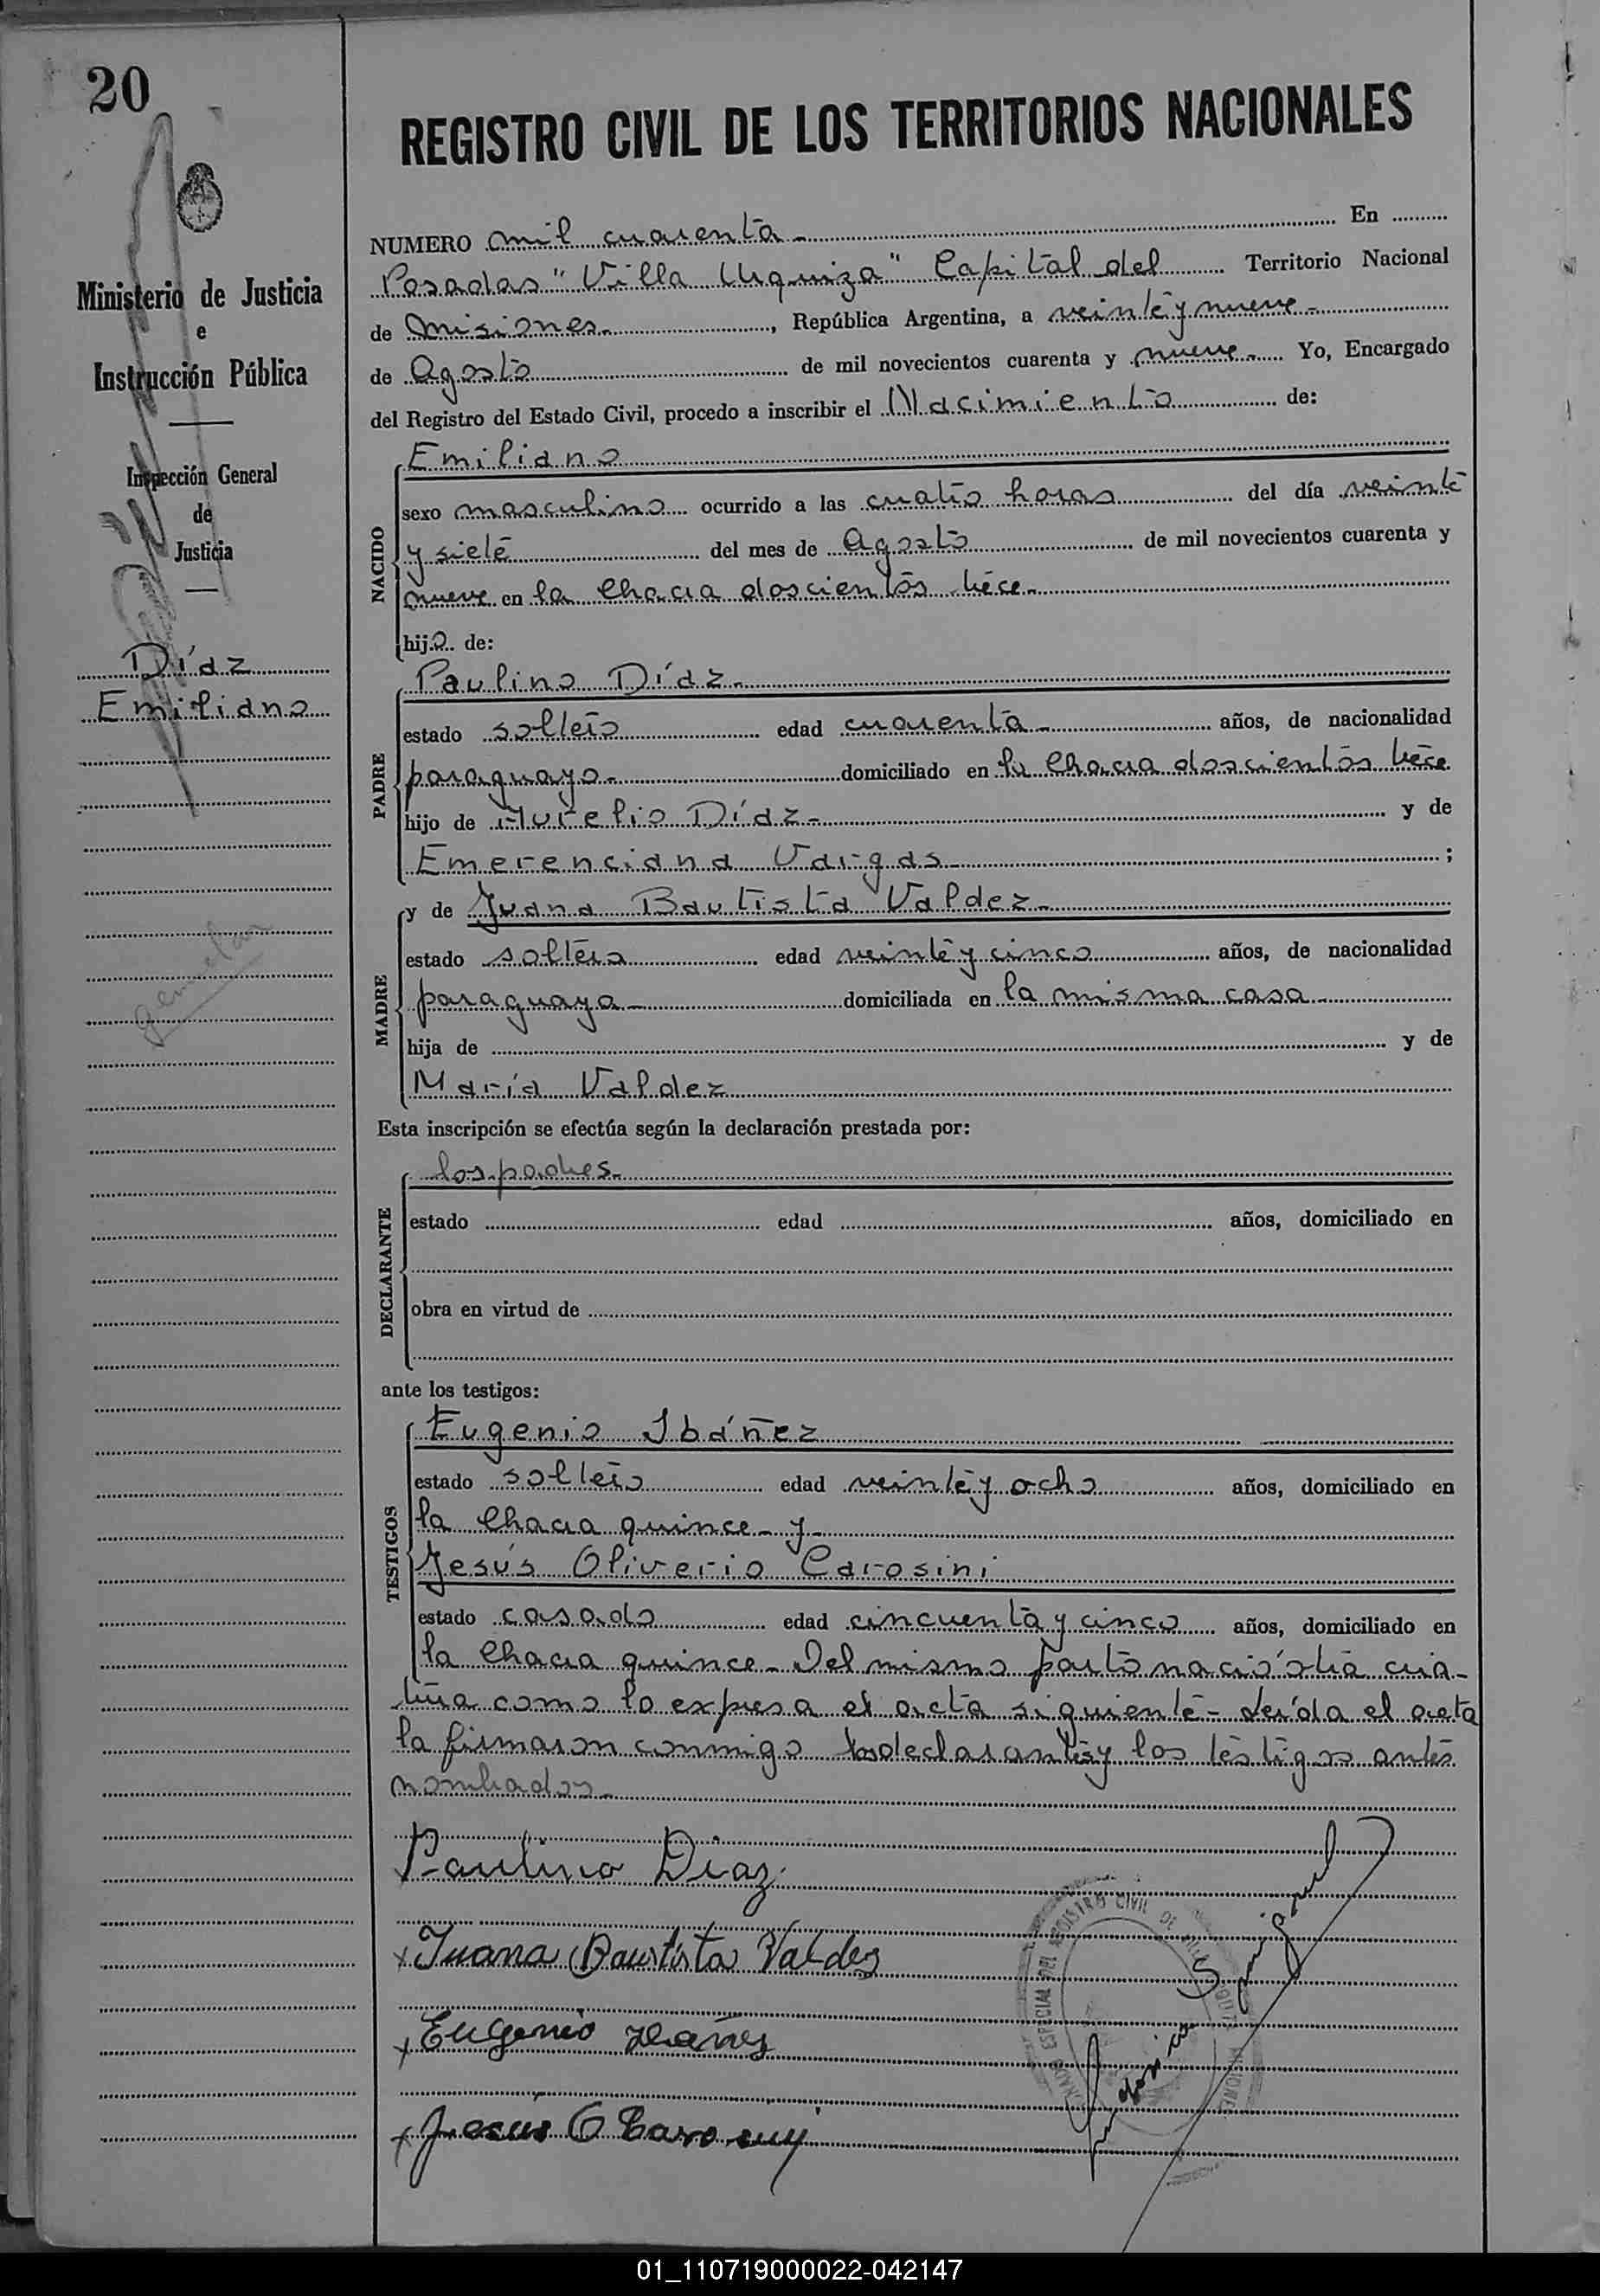 20
Ministerio de Justicia
e
Instrucción Pública
Inspección General
de
Justicia
Díaz
Emiliano
gemelar
REGISTRO CIVIL DE LOS TERRITORIOS NACIONALES
NUMERO mil cuarenta - En
Posadas "Villa Urquiza" Capital del Territorio Nacional
de Misiones, República Argentina, a veinte y nueve -
de Agosto de mil novecientos cuarenta y nueve - Yo, Encargado
del Registro del Estado Civil, procedo a inscribir el Nacimiento de:
NACIDO
Emiliano
sexo masculino ocurrido a las cuatro horas del día veinte
y siete del mes de Agosto de mil novecientos cuarenta y
nueve en la Chacra doscientos trece -
hijo de:
PADRE
Paulino Díaz -
estado soltero edad cuarenta - años, de nacionalidad
paraguayo - domiciliado en la Chacra doscientos trece
hijo de Aurelio Díaz - y de
Emerenciana Vargas ;
MADRE
y de Juana Bautista Valdez -
estado soltera edad veinte y cinco años, de nacionalidad
paraguaya - domiciliada en la misma casa -
hija de y de
María Valdez
Esta inscripción se efectúa según la declaración prestada por:
DECLARANTE
los padres -
estado edad años, domiciliado en
obra en virtud de
ante los testigos:
TESTIGOS
Eugenio Ibáñez
estado soltero edad veinte y ocho años, domiciliado en
la Chacra quince - y -
Jesús Oliverio Carosini
estado casado edad cincuenta y cinco años, domiciliado en
la Chacra quince - Del mismo parto nació otra cria-
tura como lo expresa el acta siguiente - Leída el acta
la firmaron conmigo los declarantes y los testigos antes
nombrados -
Paulino Diaz
x Juana Bautista Valdez
x Eugenio Ibañez
x Jesús O Carosini
ESPECIAL DEL REGISTRO CIVIL DE
MISIONES
01_110719000022-042147